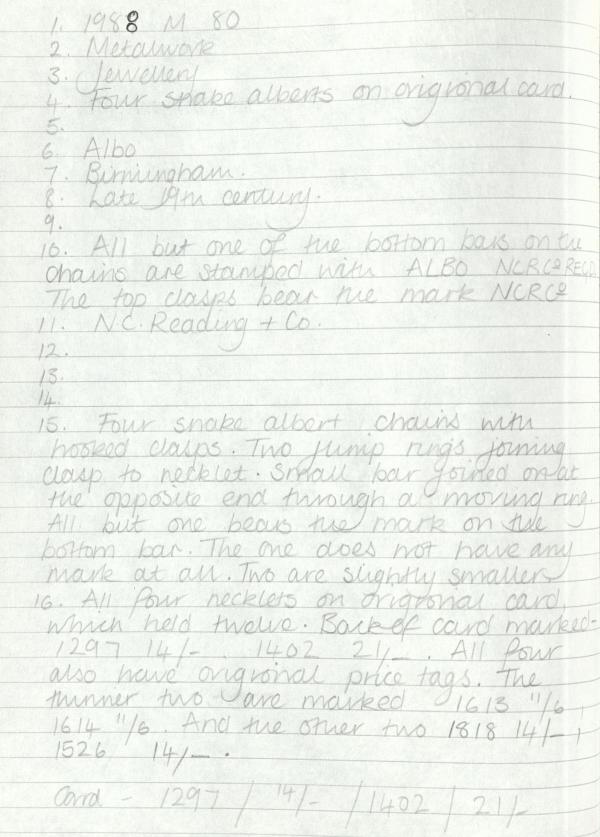 1. 1988 M 80
2. Metalwork
3. Jewellery
4. Four snake alberts on origronal card.
5.
6. Albo
7. Birmingham.
8. Late 19th century.
9.
10. All but one of the bottom bars on the
chains are stamped with ALBO NCRCo REGD.
The top clasps bear the mark NCRCo
11. N.C. Reading + Co.
12.
13.
14.
15. Four snake albert chains with
hooked clasps. Two jump rings joining
clasp to necklet. Small bar joined on at
the opposite end through a moving ring.
All but one bears the mark on the
bottom bar. The one does not have any
mark at all. Two are slightly smaller
16. All four necklets on origronal card,
which held twelve. Back of card marked:-
1297 14/- . 1402 21/- . All four
also have origronal price tags. The
thinner two are marked 1613 11/6,
1614 11/6. And the other two 1818 14/-,
1526 14/- .
Card - 1297 / 14/- / 1402 / 21/-